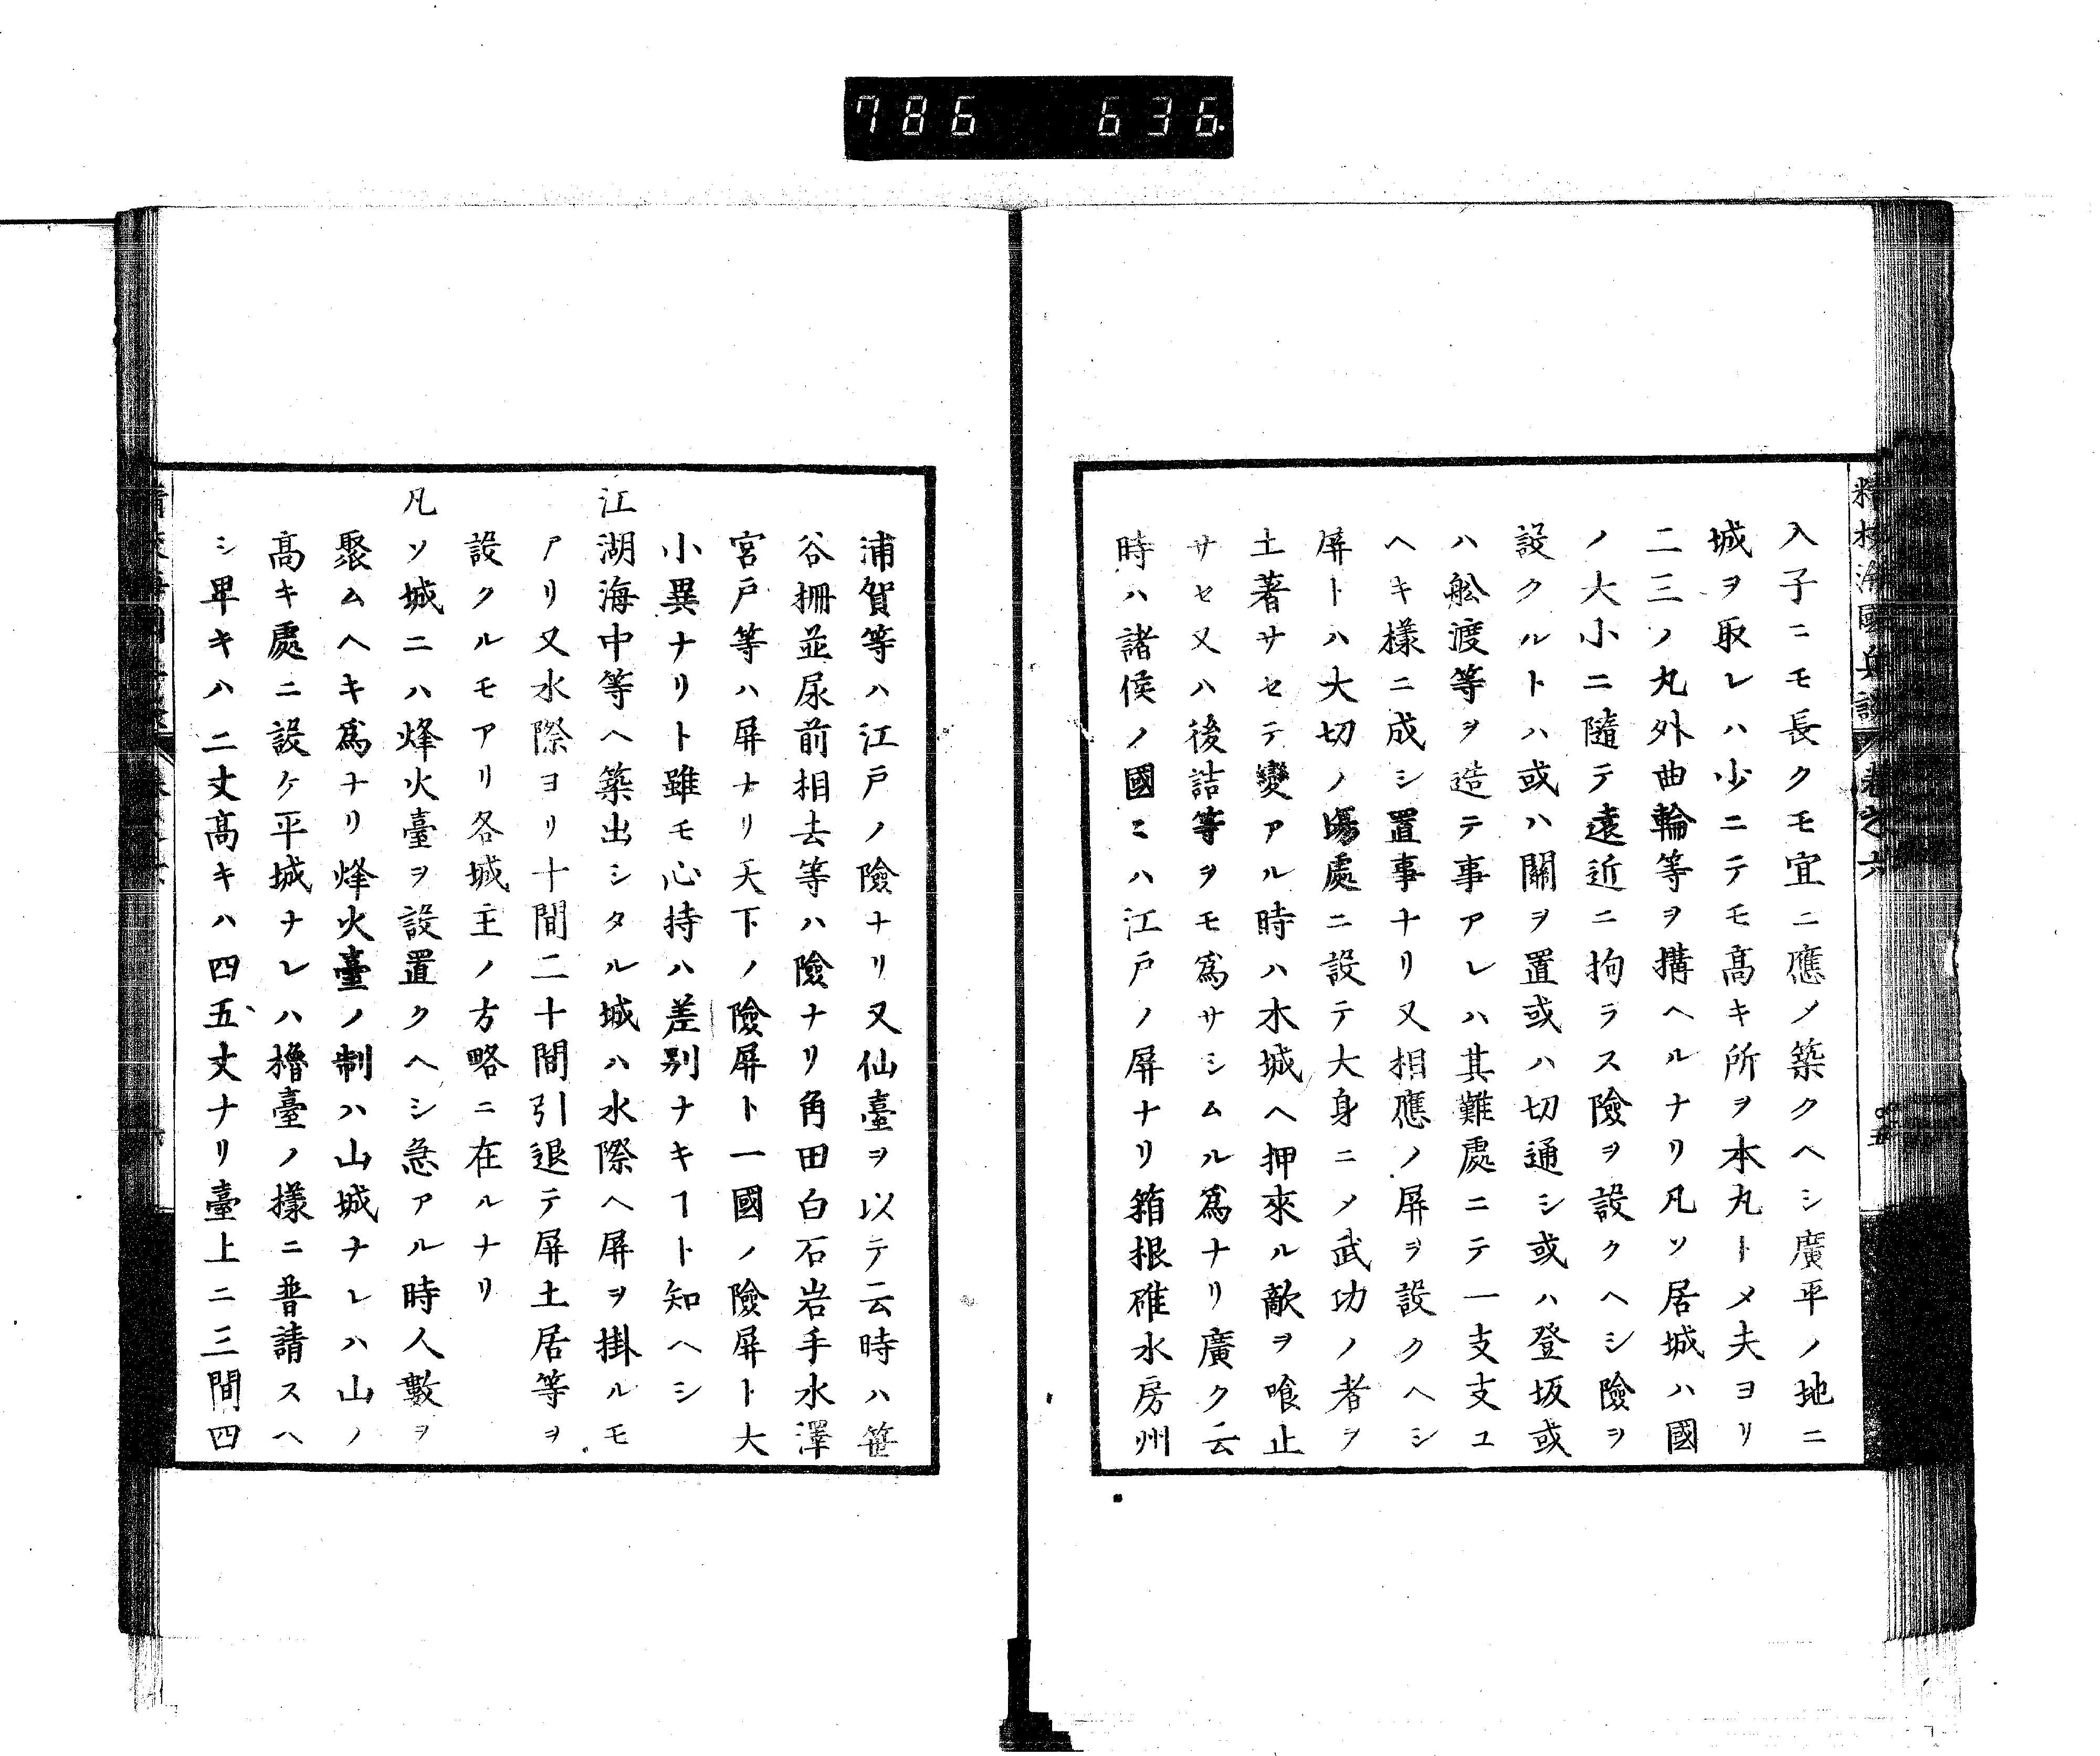 786 636
精校海國兵談 卷之六
入子ニモ長クモ宜ニ應メ築クヘシ廣平ノ地ニ
城ヲ取レハ少ニテモ髙キ所ヲ本丸トメ夫ヨリ
二三ノ丸外曲輪等ヲ搆ヘルナリ凡ソ居城ハ國
ノ大小ニ隨テ遠近ニ拘ラス險ヲ設クヘシ險ヲ
設クルトハ或ハ關ヲ置或ハ切通シ或ハ登坂或
ハ舩渡等ヲ造テ事アレハ其難處ニテ一支支ユ
ヘキ樣ニ成シ置事ナリ又相應ノ屏ヲ設クヘシ
屏トハ大切ノ塲處ニ設テ大身ニメ武功ノ者ヲ
土著サセテ變アル時ハ木城ヘ押來ル敵ヲ喰止
サセ又ハ後詰等ヲモ爲サシムル爲ナリ廣ク云
時ハ諸侯ノ國ニハ江戸ノ屏ナリ箱根碓水房州
浦賀等ハ江戸ノ險ナリ又仙臺ヲ以テ云時ハ笹
谷柵並尿前相去等ハ險ナリ角田白石岩手水澤
宮戸等ハ屏ナリ天下ノ險屏ト一國ノ險屏ト大
小異ナリト雖モ心持ハ差别ナキヿト知ヘシ
江湖海中等ヘ築出シタル城ハ水際ヘ屏ヲ掛ルモ
アリ又水際ヨリ十間二十間引退テ屏土居等ヲ
設クルモアリ各城主ノ方略ニ在ルナリ
凡ソ城ニハ烽火臺ヲ設置クヘシ急アル時人數ヲ
聚ムヘキ爲ナリ烽火臺ノ制ハ山城ナレハ山ノ
髙キ處ニ設ケ平城ナレハ櫓臺ノ樣ニ普請スヘ
シ卑キハ二丈髙キハ四五丈ナリ臺上ニ三間四